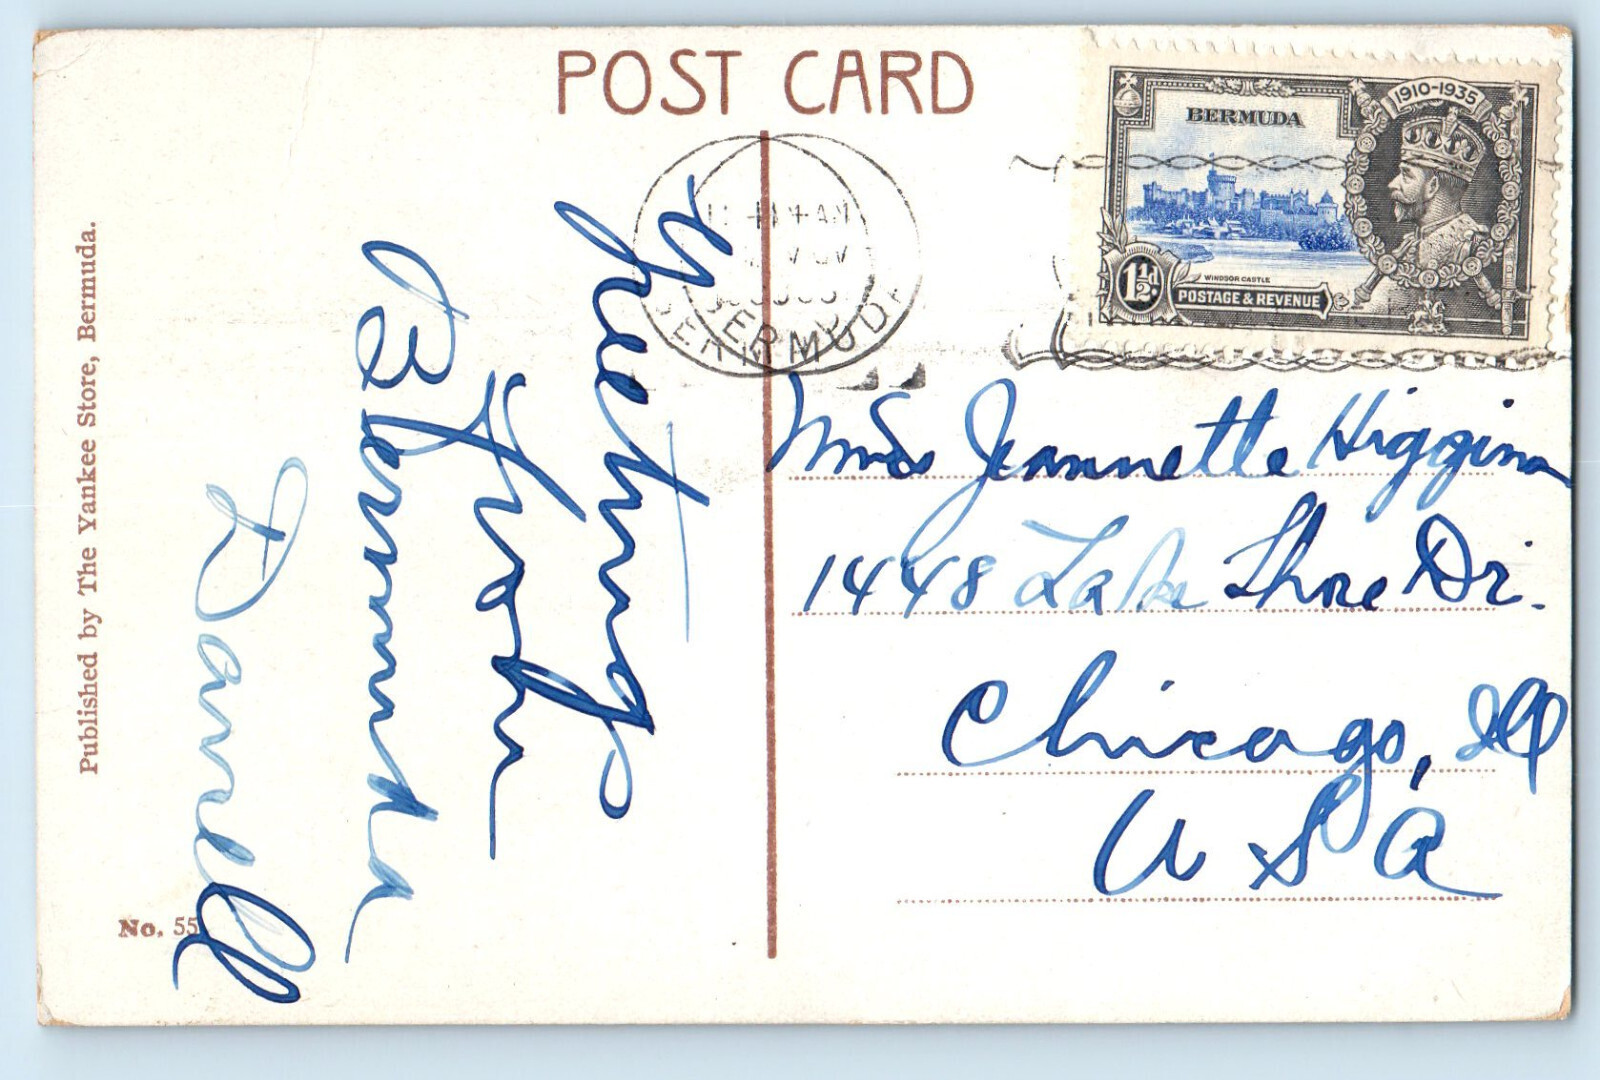 POST CARD
BERMUDA
1910-1935
WINDSOR CASTLE
1½d.
POSTAGE & REVENUE
AM
BERMUDA
Greetings
from
Bermuda
Darrell
Miss Jeannette Higgins
1448 Lake Shore Dr.
Chicago, Ill
USA
Published by The Yankee Store, Bermuda.
No. 55